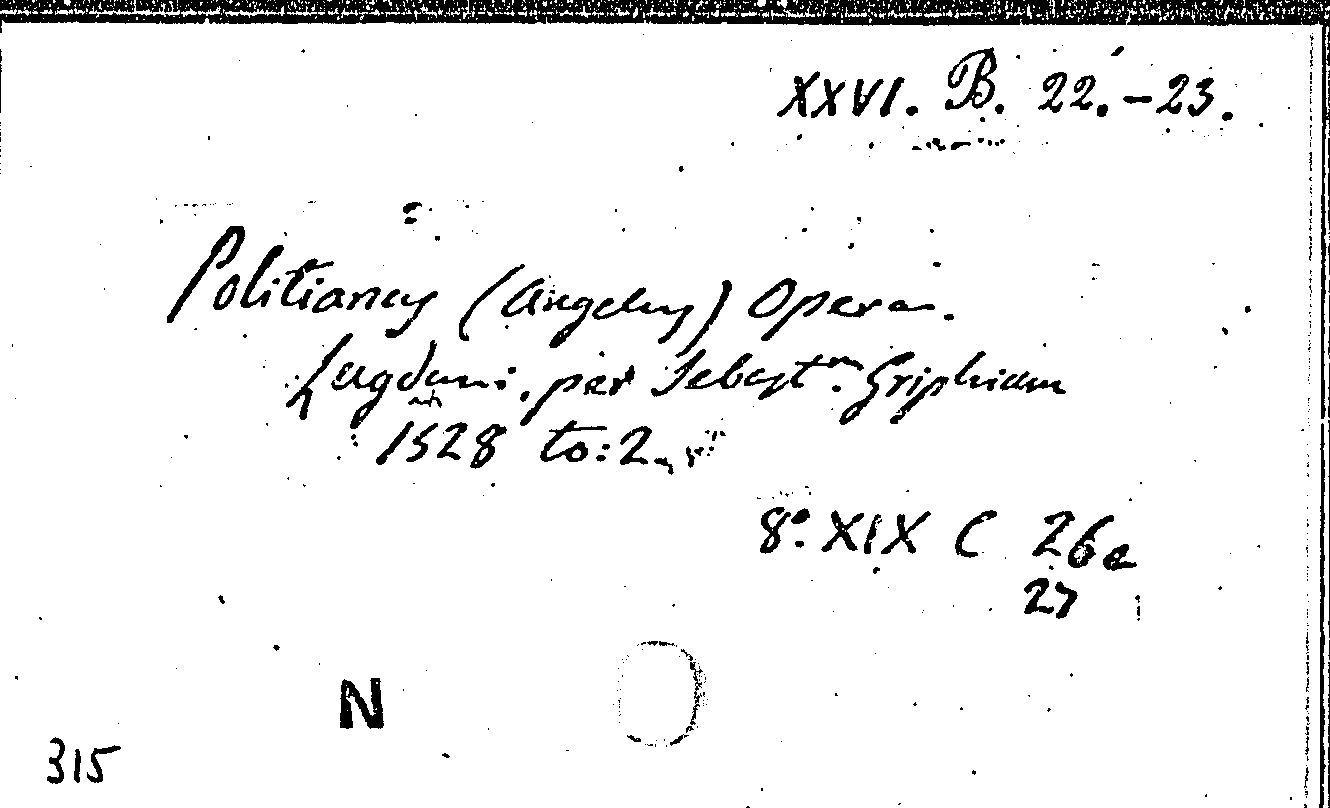 XXVI. B. 22.-23.
Politianus (Angelus) Opera.
Lugduni, per Sebastm. Griphium
1528 to: 2
8o. XIX C 26e
27
N
315